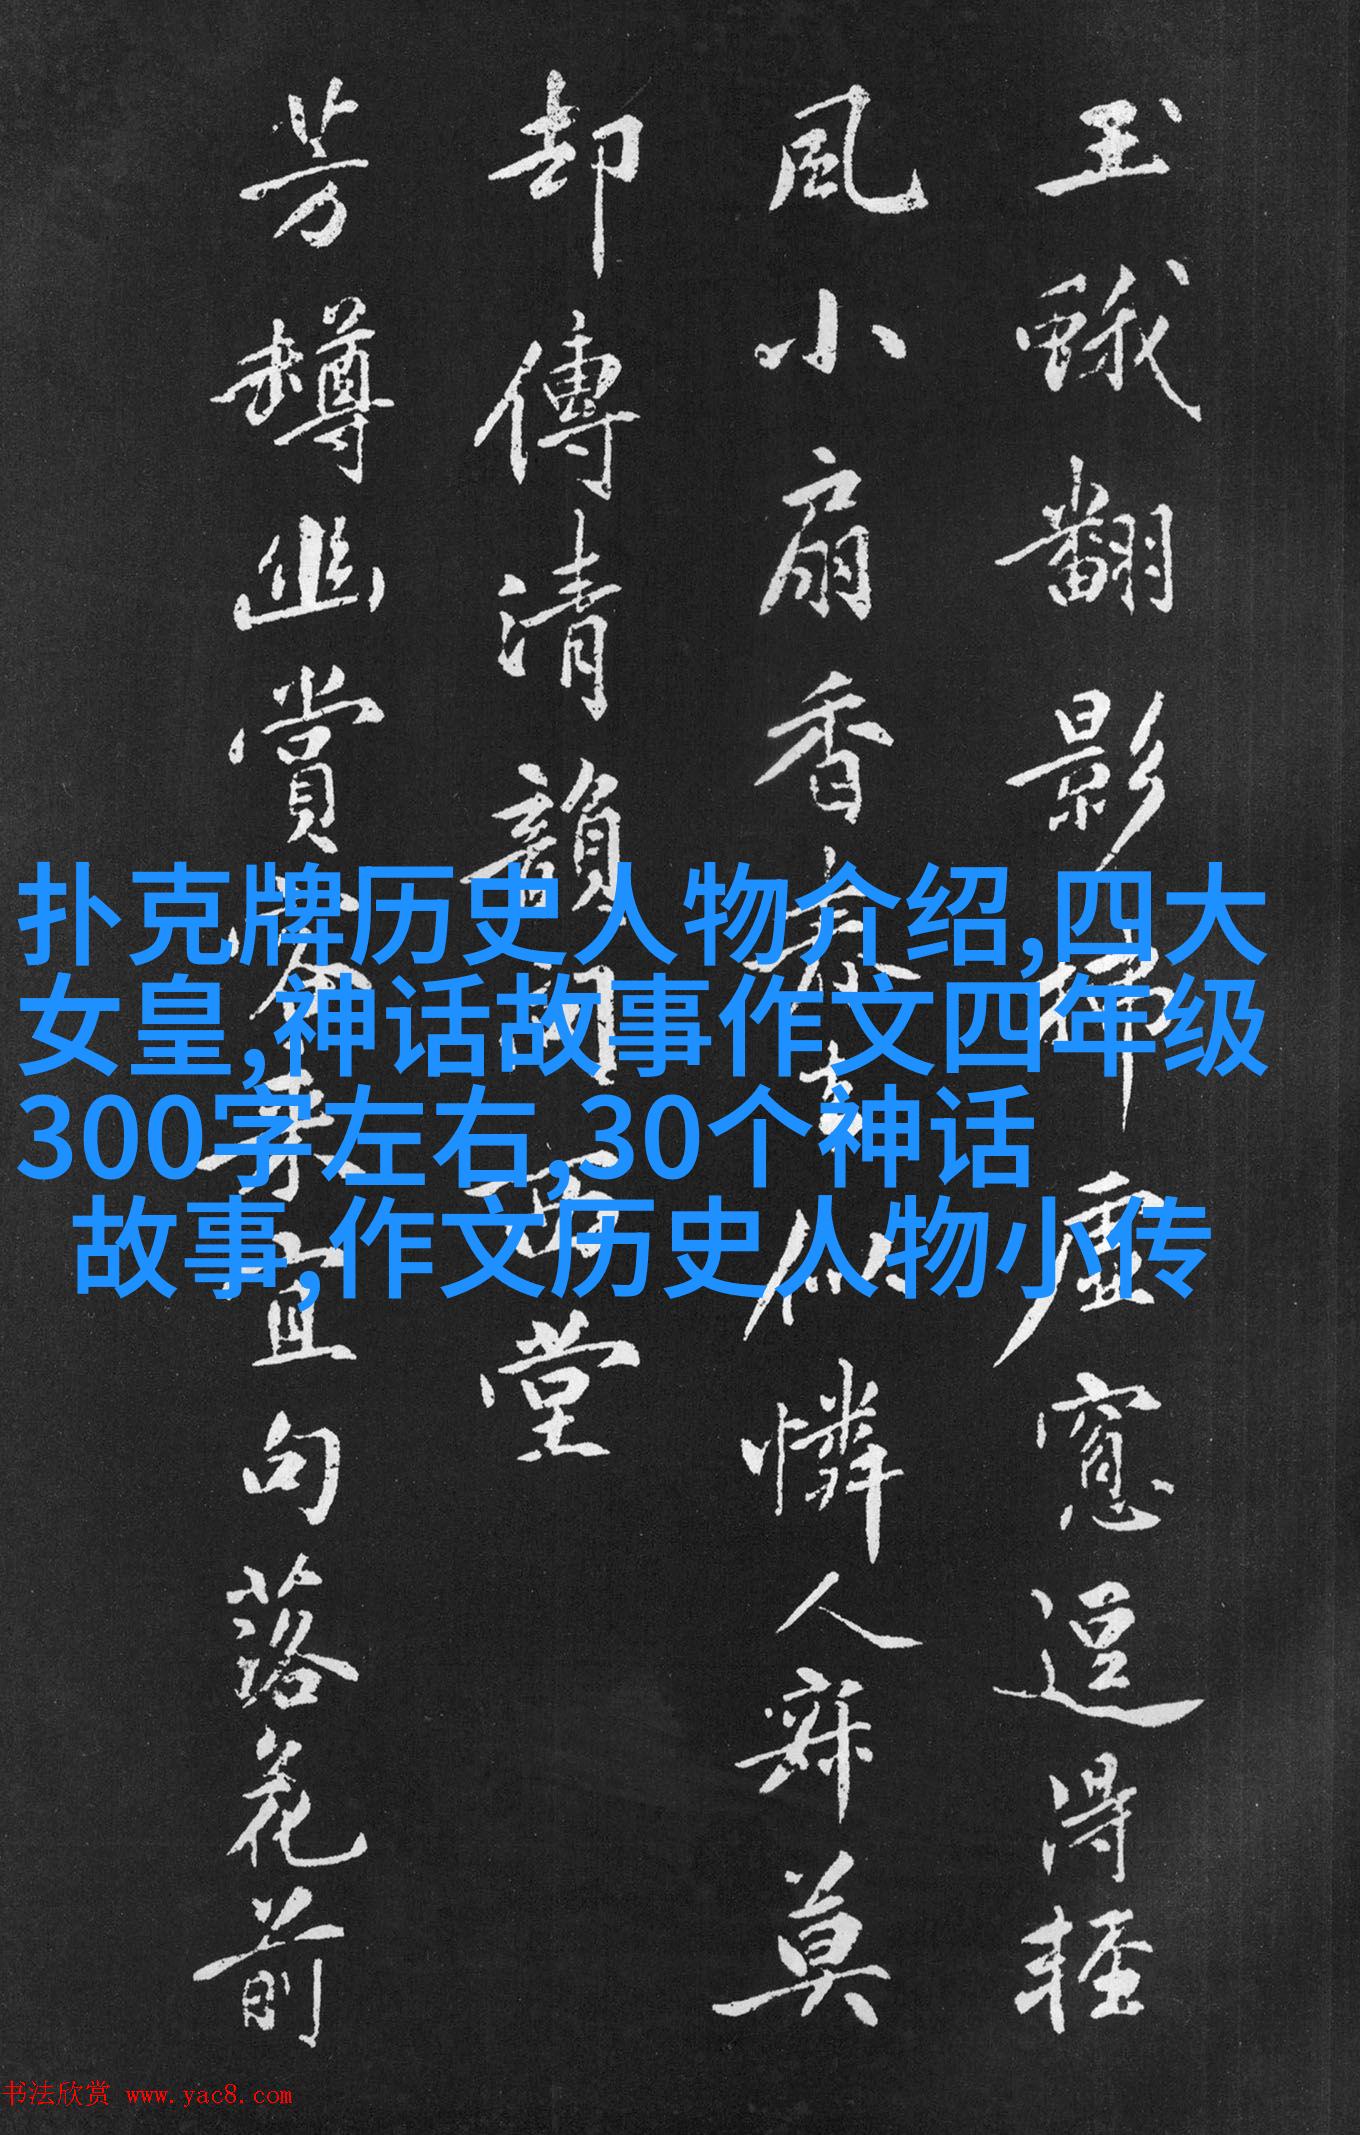 玉蛾翻影掃虚窻逗得輕
風小扇香似憐人寐莫
却傳清韻西堂
芳罇幽賞宜句落花前
扑克牌历史人物介绍,四大
女皇,神话故事作文四年级
300字左右,30个神话
故事,作文历史人物小传
书法欣赏 www.yac8.com